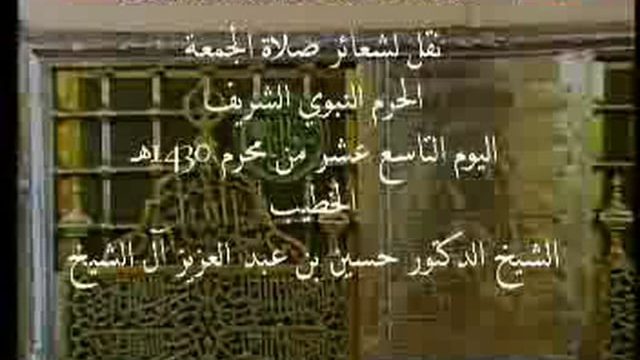 نقل لشعائر صلاة الجمعة
الحرم النبوي الشريف
اليوم التاسع عشر من محرم 1430هـ
الخطيب
الشيخ الدكتور حسين بن عبد العزيز آل الشيخ